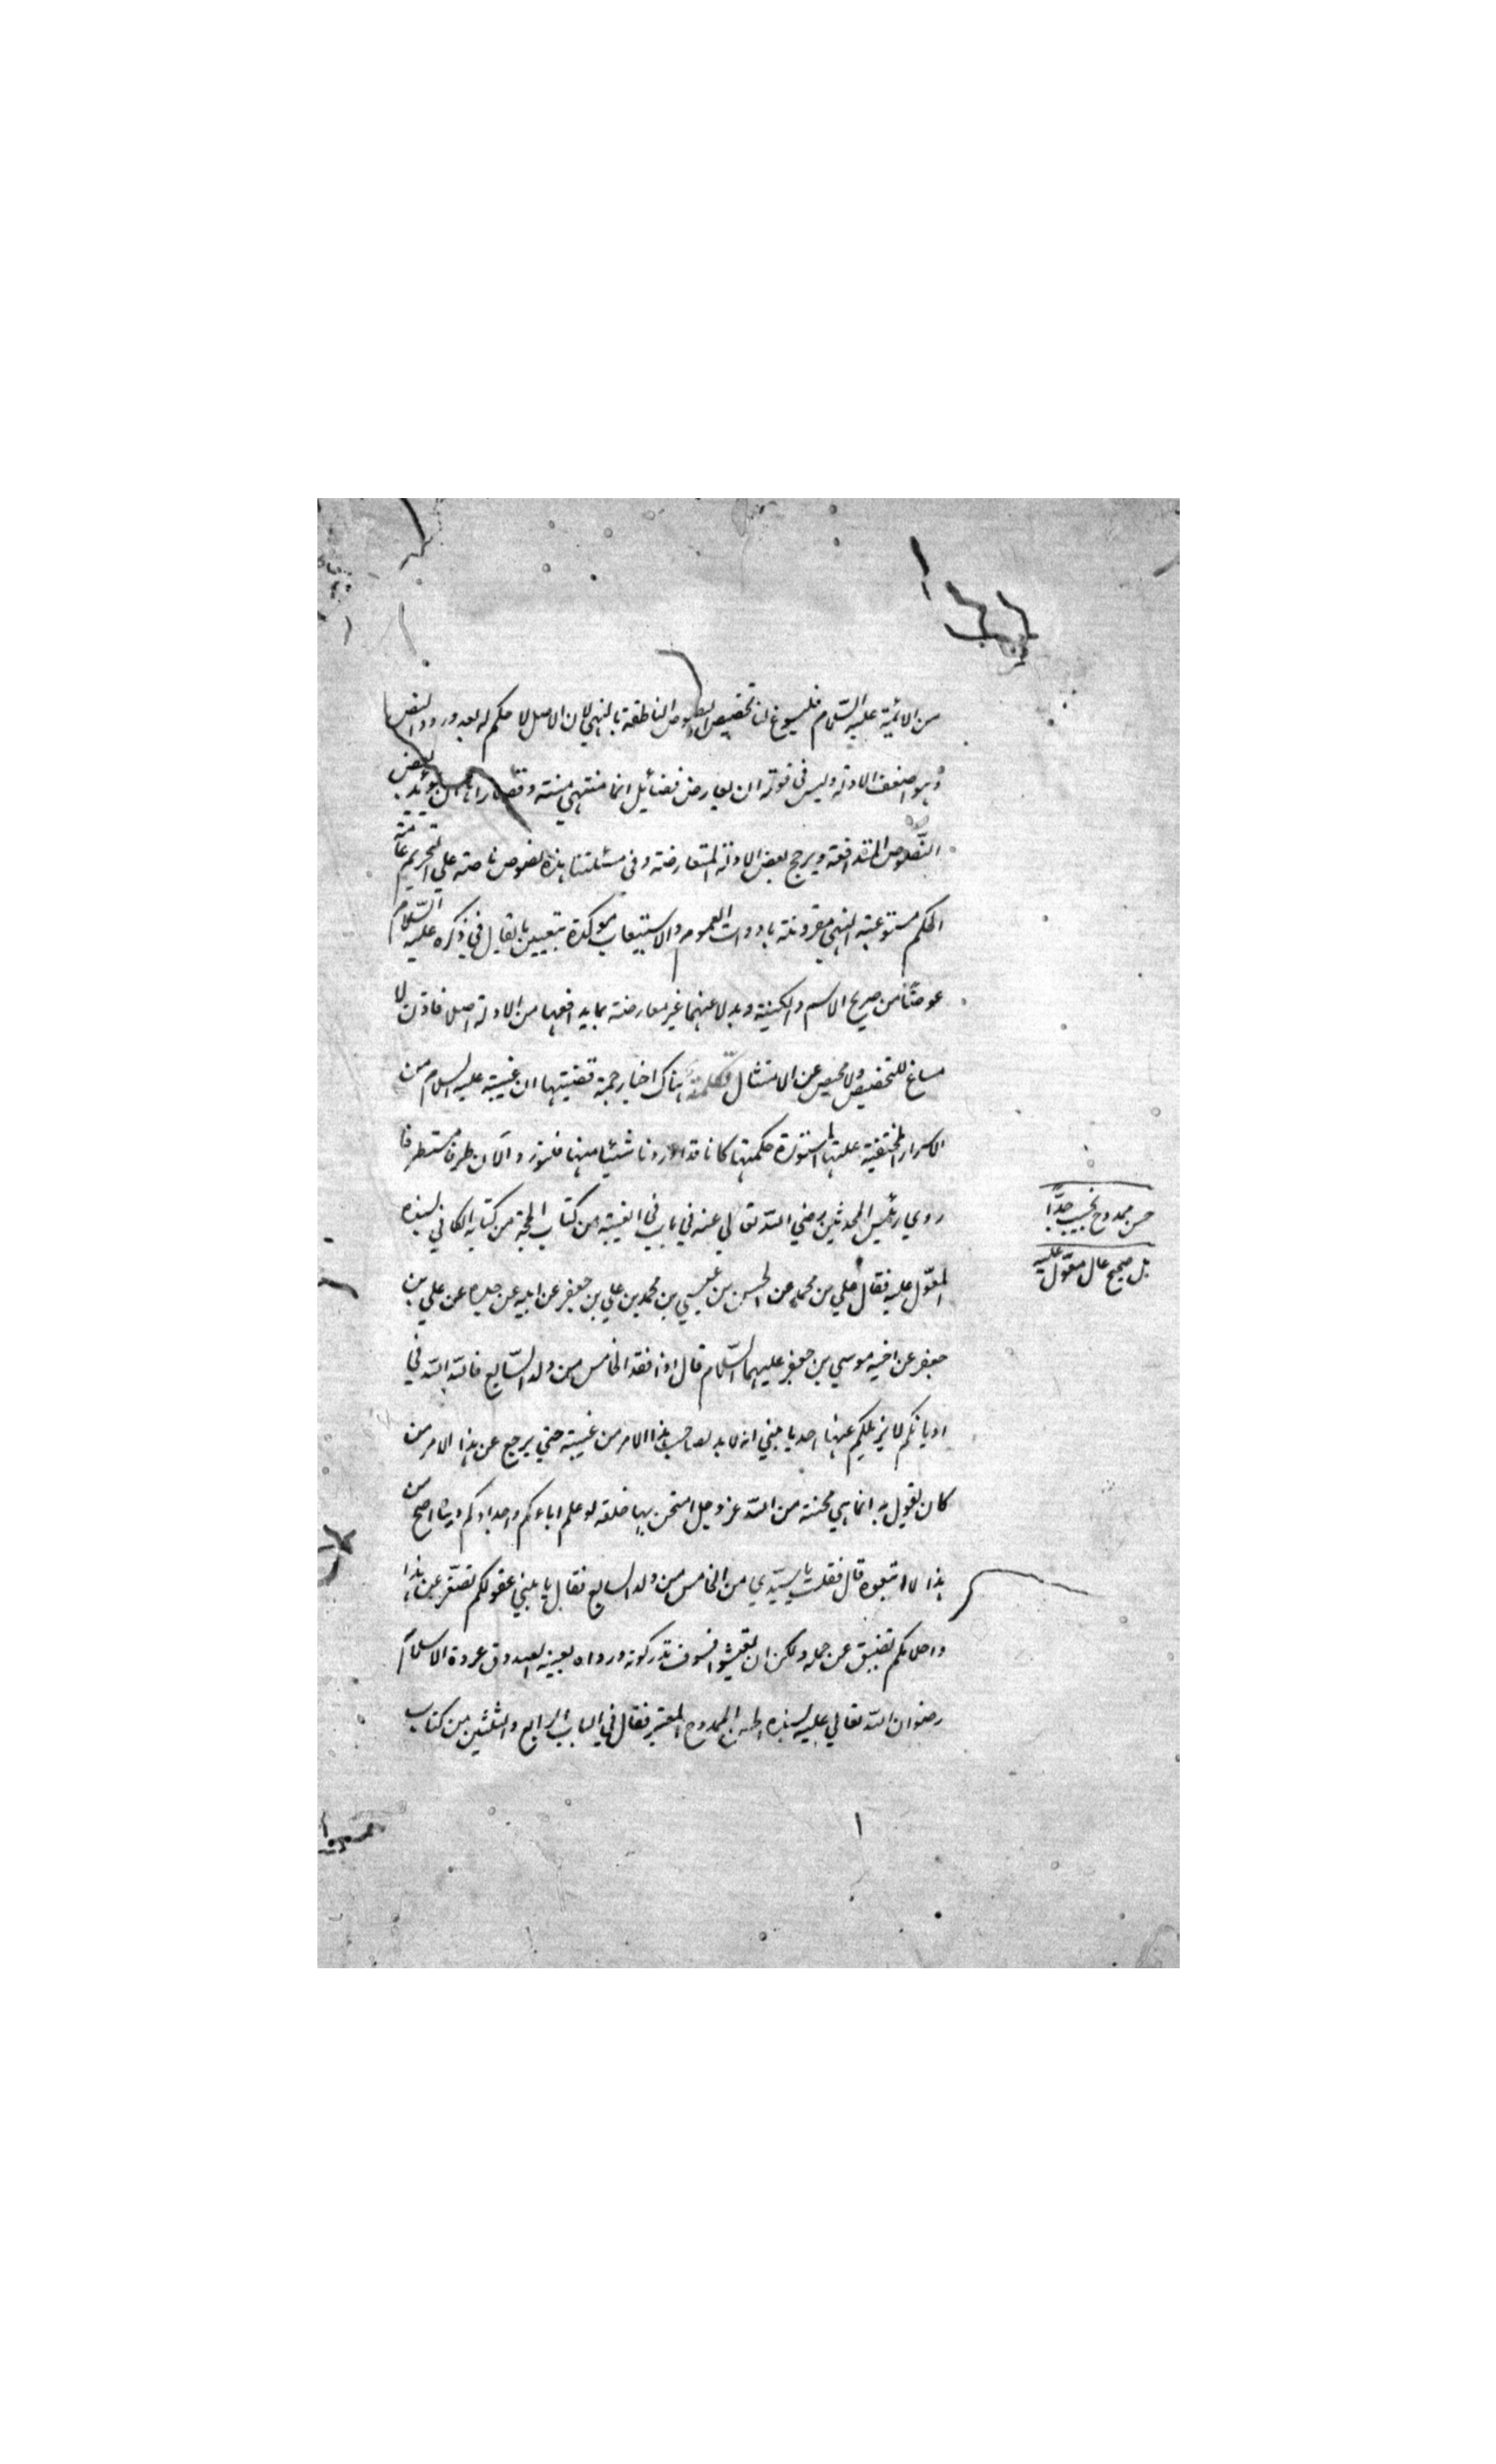 من الائمة عليه السلام فليسوغ لنا تخصيص النصوص الناطقة بالنهي لان الاصل لا حكم له بعد ورود النص
وهو اضعف الادلة وليس في قوته ان يعارض فضائيل انما منتهى منته وقصاراه ان يؤيد بعض
النصوص المتدافعة ويرجح بعض الادلة المتعارضة وفي مسئلتنا هذه نصوص ناصة على التحريم عامة
الحكم مستوعبة النهي مقرونة بادوات العموم والاستيعاب موكدة بتعيين ما يقال في ذكره عليه السلام
عوضا من صريح الاسم والكنية وبدلا عنهما غير معارضة بما يدافعها من الادلة اصلا فاذن لا
مساغ للتخصيص ولا محيص عن الامتثال تكملة هناك اخبار جمة قضيتها ان غيبته عليه السلام من
الاسرار المختفية علتها المستورة حكمتها كانا قد اوردنا شيئا منها فلنورد الآن طرفا مستطرفا
روى رئيس المحدثين رضي الله تعالى عنه في باب في الغيبة من كتاب الحجة من كتابه الكافي بسنده
المعول عليه فقال علي بن محمد عن الحسن بن عيسى بن محمد بن علي بن جعفر عن ابيه عن جده عن علي بن
جعفر عن اخيه موسى بن جعفر عليهما السلام قال اذا فقد الخامس من ولد السابع فالله الله في
اديانكم لا يزيلكم عنها احد يا بني انه لا بد لصاحب هذا الامر من غيبة حتى يرجع عن هذا الامر من
كان يقول به انما هي محنة من الله عز وجل امتحن بها خلقه لو علم اباءكم واجدادكم دينا اصح من
هذا لاتبعوه قال فقلت يا سيدي من الخامس من ولد السابع فقال يا بني عقولكم تصغر عن هذا
واحلامكم تضيق عن حمله ولكن ان تعيشوا فسوف تدركونه ورواه بعينه الصدوق عروة الاسلام
رضوان الله تعالى عليه بسنده الحسن الممدوح المعتبر فقال في الباب الرابع والثلثين من كتاب
حسن ممدوح نجيب جدا
بل صحيح عال معول عليه